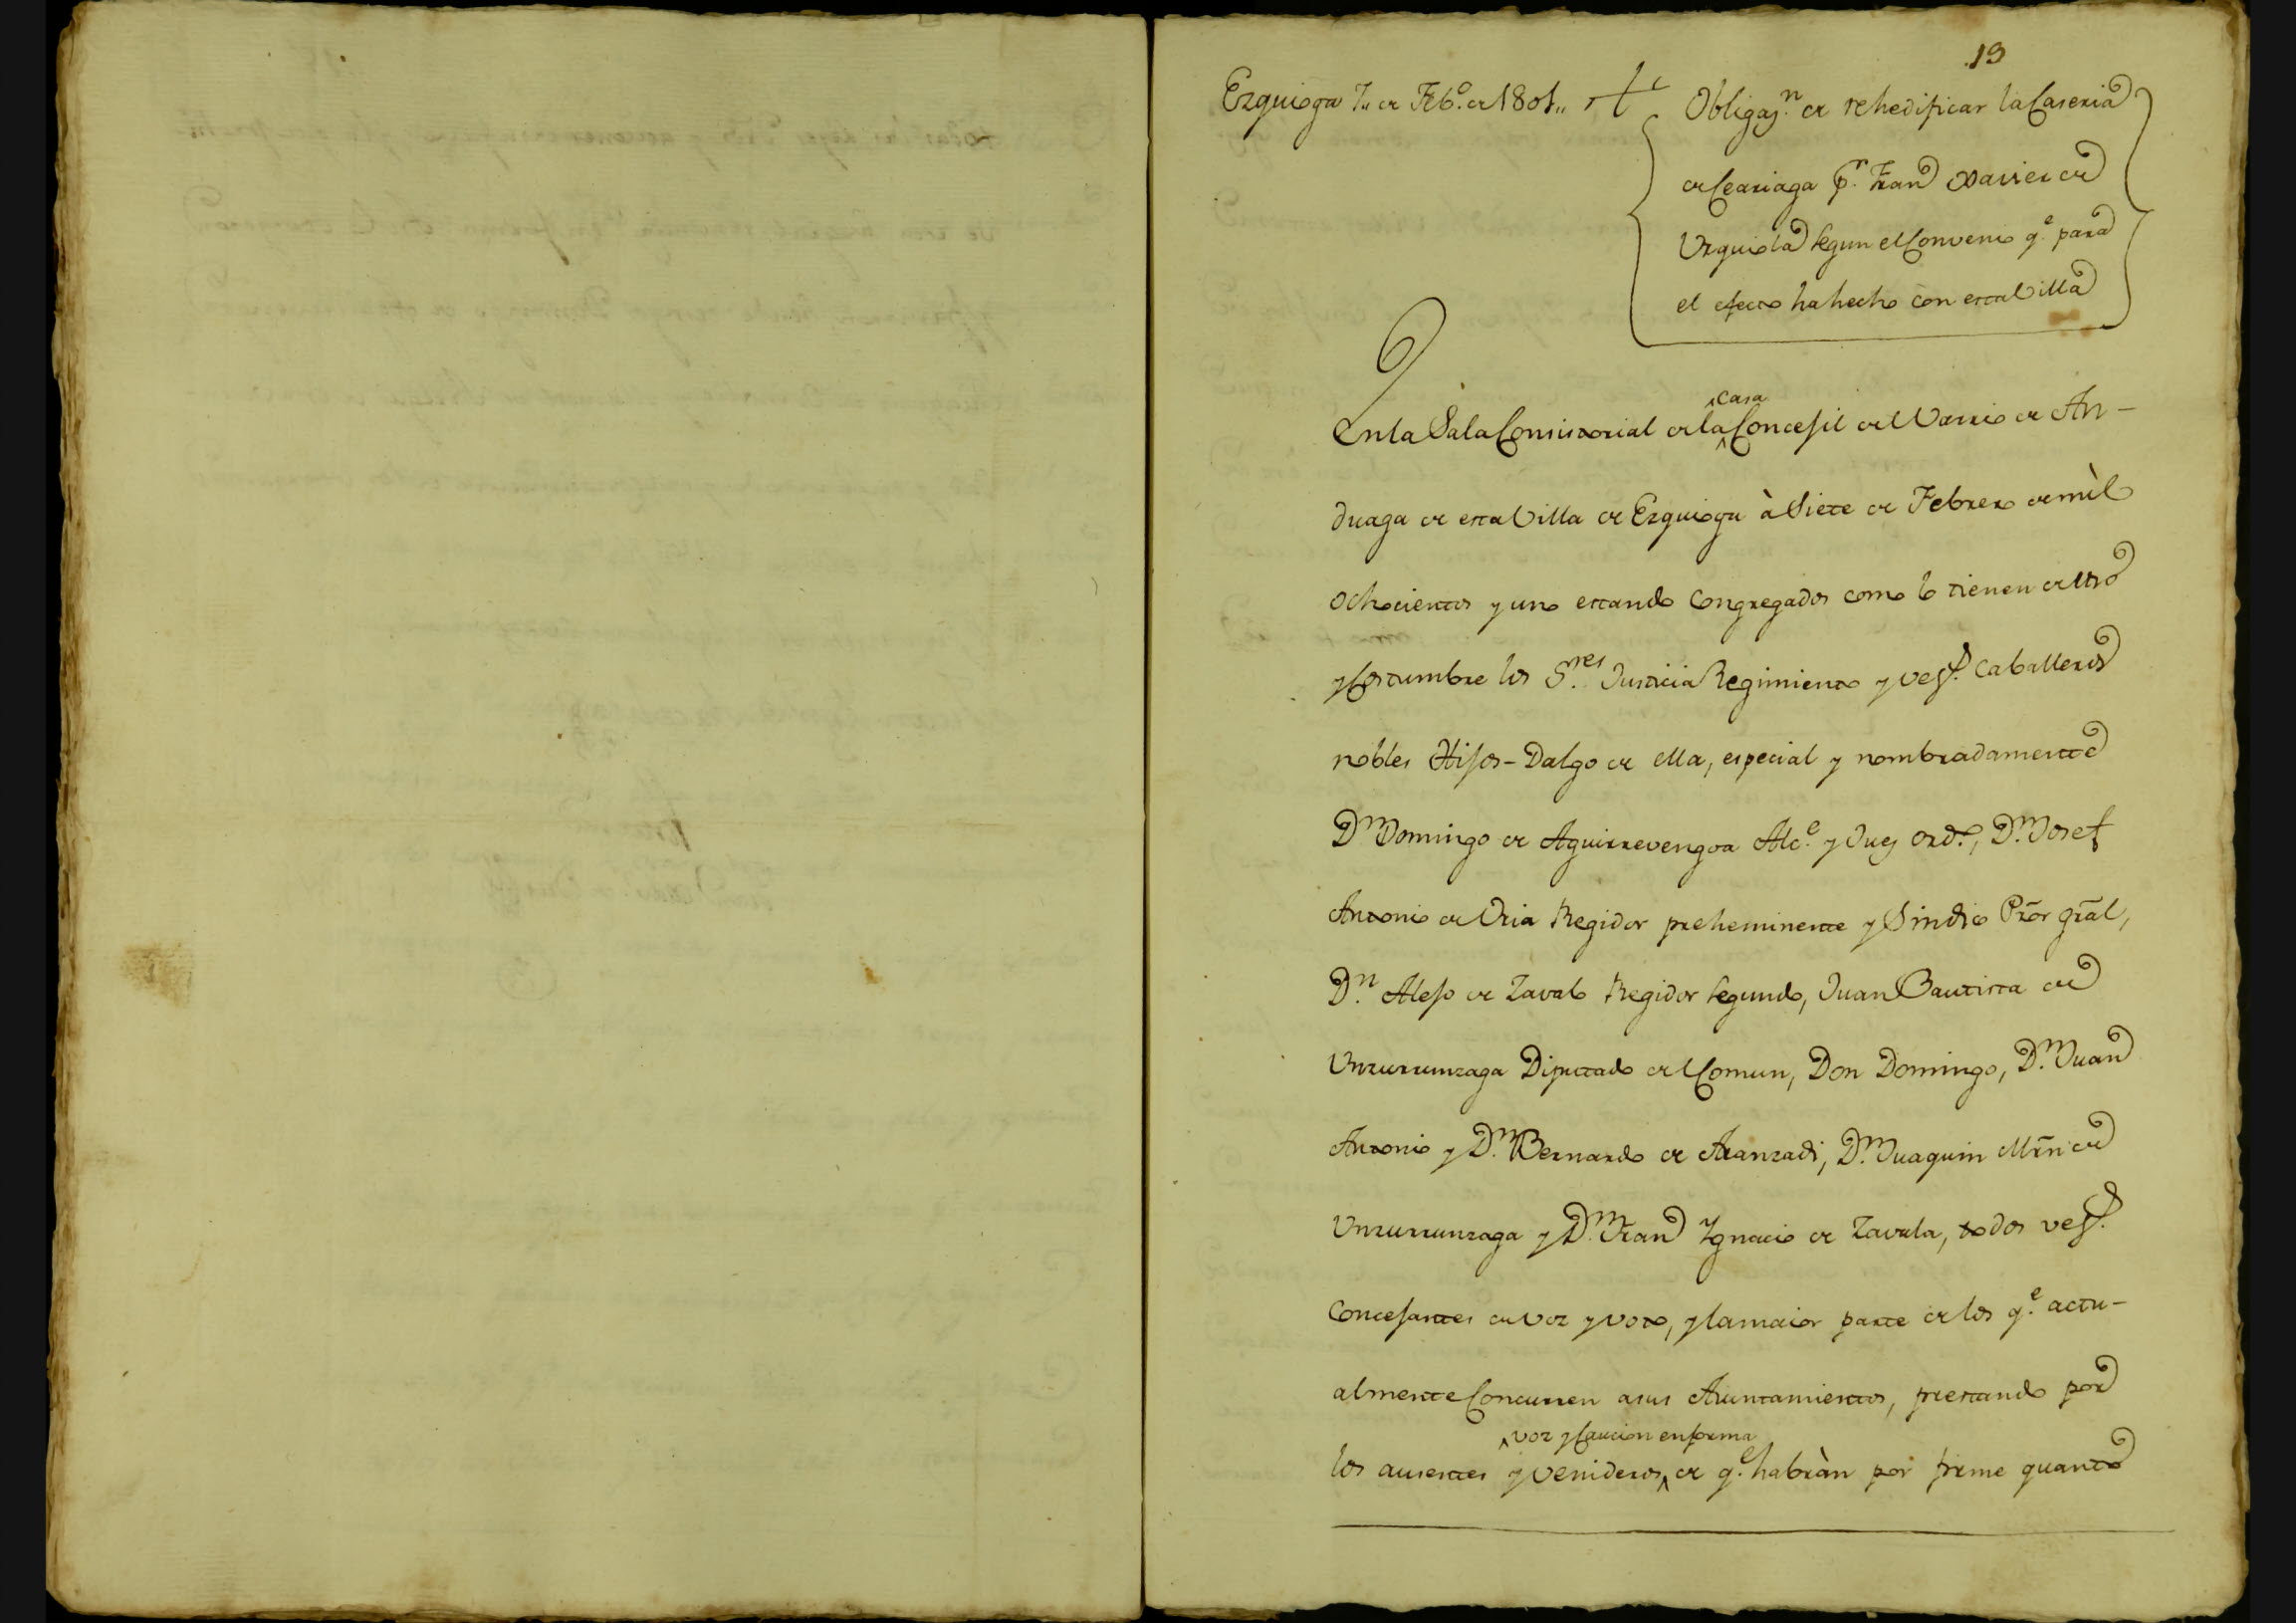 19
Ezquioga 7,, de Feb.º de 1801,,
Obligaz.n de rehedificar la Caseria
de Leariaga p.r Fran.co Xavier de
Urquiola segun el Convenio q.e para
el efecto ha hecho con esta Villa
En la Sala Consistorial de la ^casa Concejil del Varrio de An-
duaga de esta Villa de Ezquioga à Siete de Febrero de mìl
ochocientos y uno estando Congregados como lo tienen de uso
y Costumbre los S.res Justicia Regimiento y vez.s Caballeros
nobles Hijos-Dalgo de ella, especial y nombradamente
D.n Domingo de Aguirrevengoa Alc.e y Juez ord.o, D.n Josef
Antonio de Oria Regidor preheminente y Sindico Prõr grãl,
D.n Alejo de Zavalo Regidor segundo, Juan Bautista de
Unzurrunzaga Diputado del Comun, Don Domingo, D.n Juan
Antonio y D.n Bernardo de Aranzadi, D.n Juaquin Mrñ de
Unzurrunzaga y D.n Fran.co Ygnacio de Zavala, todos vez.s
Concejantes de voz y voto, y la maior parte de los q.e actu-
almente Concurren a sus Aiuntamientos, prestando por
los ausentes y venideros ^voz y Caucion en forma de q.e habràn por firme quanto